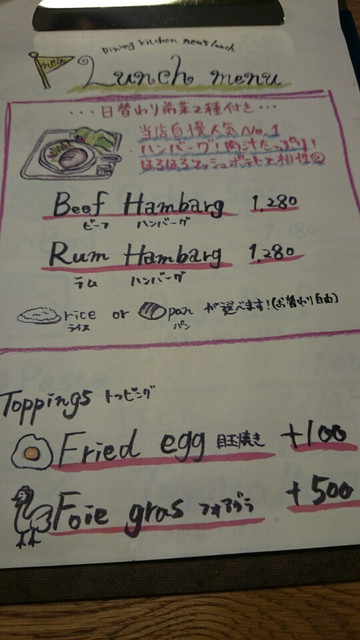 Dining kitchen new's lunch
new
Lunch menu
・・・日替わり前菜2種付き・・・
当店自慢人気No.1
ハンバーグ!肉汁たっぷり!
Beef Hambarg 1,280
ビーフ ハンバーグ
Rum Hambarg 1,280
ラム ハンバーグ
rice or pan が選べます!(お替わり自由)
ライス パン
Toppings トッピング
Fried egg 目玉焼き +100
Foie gras フォアグラ +500